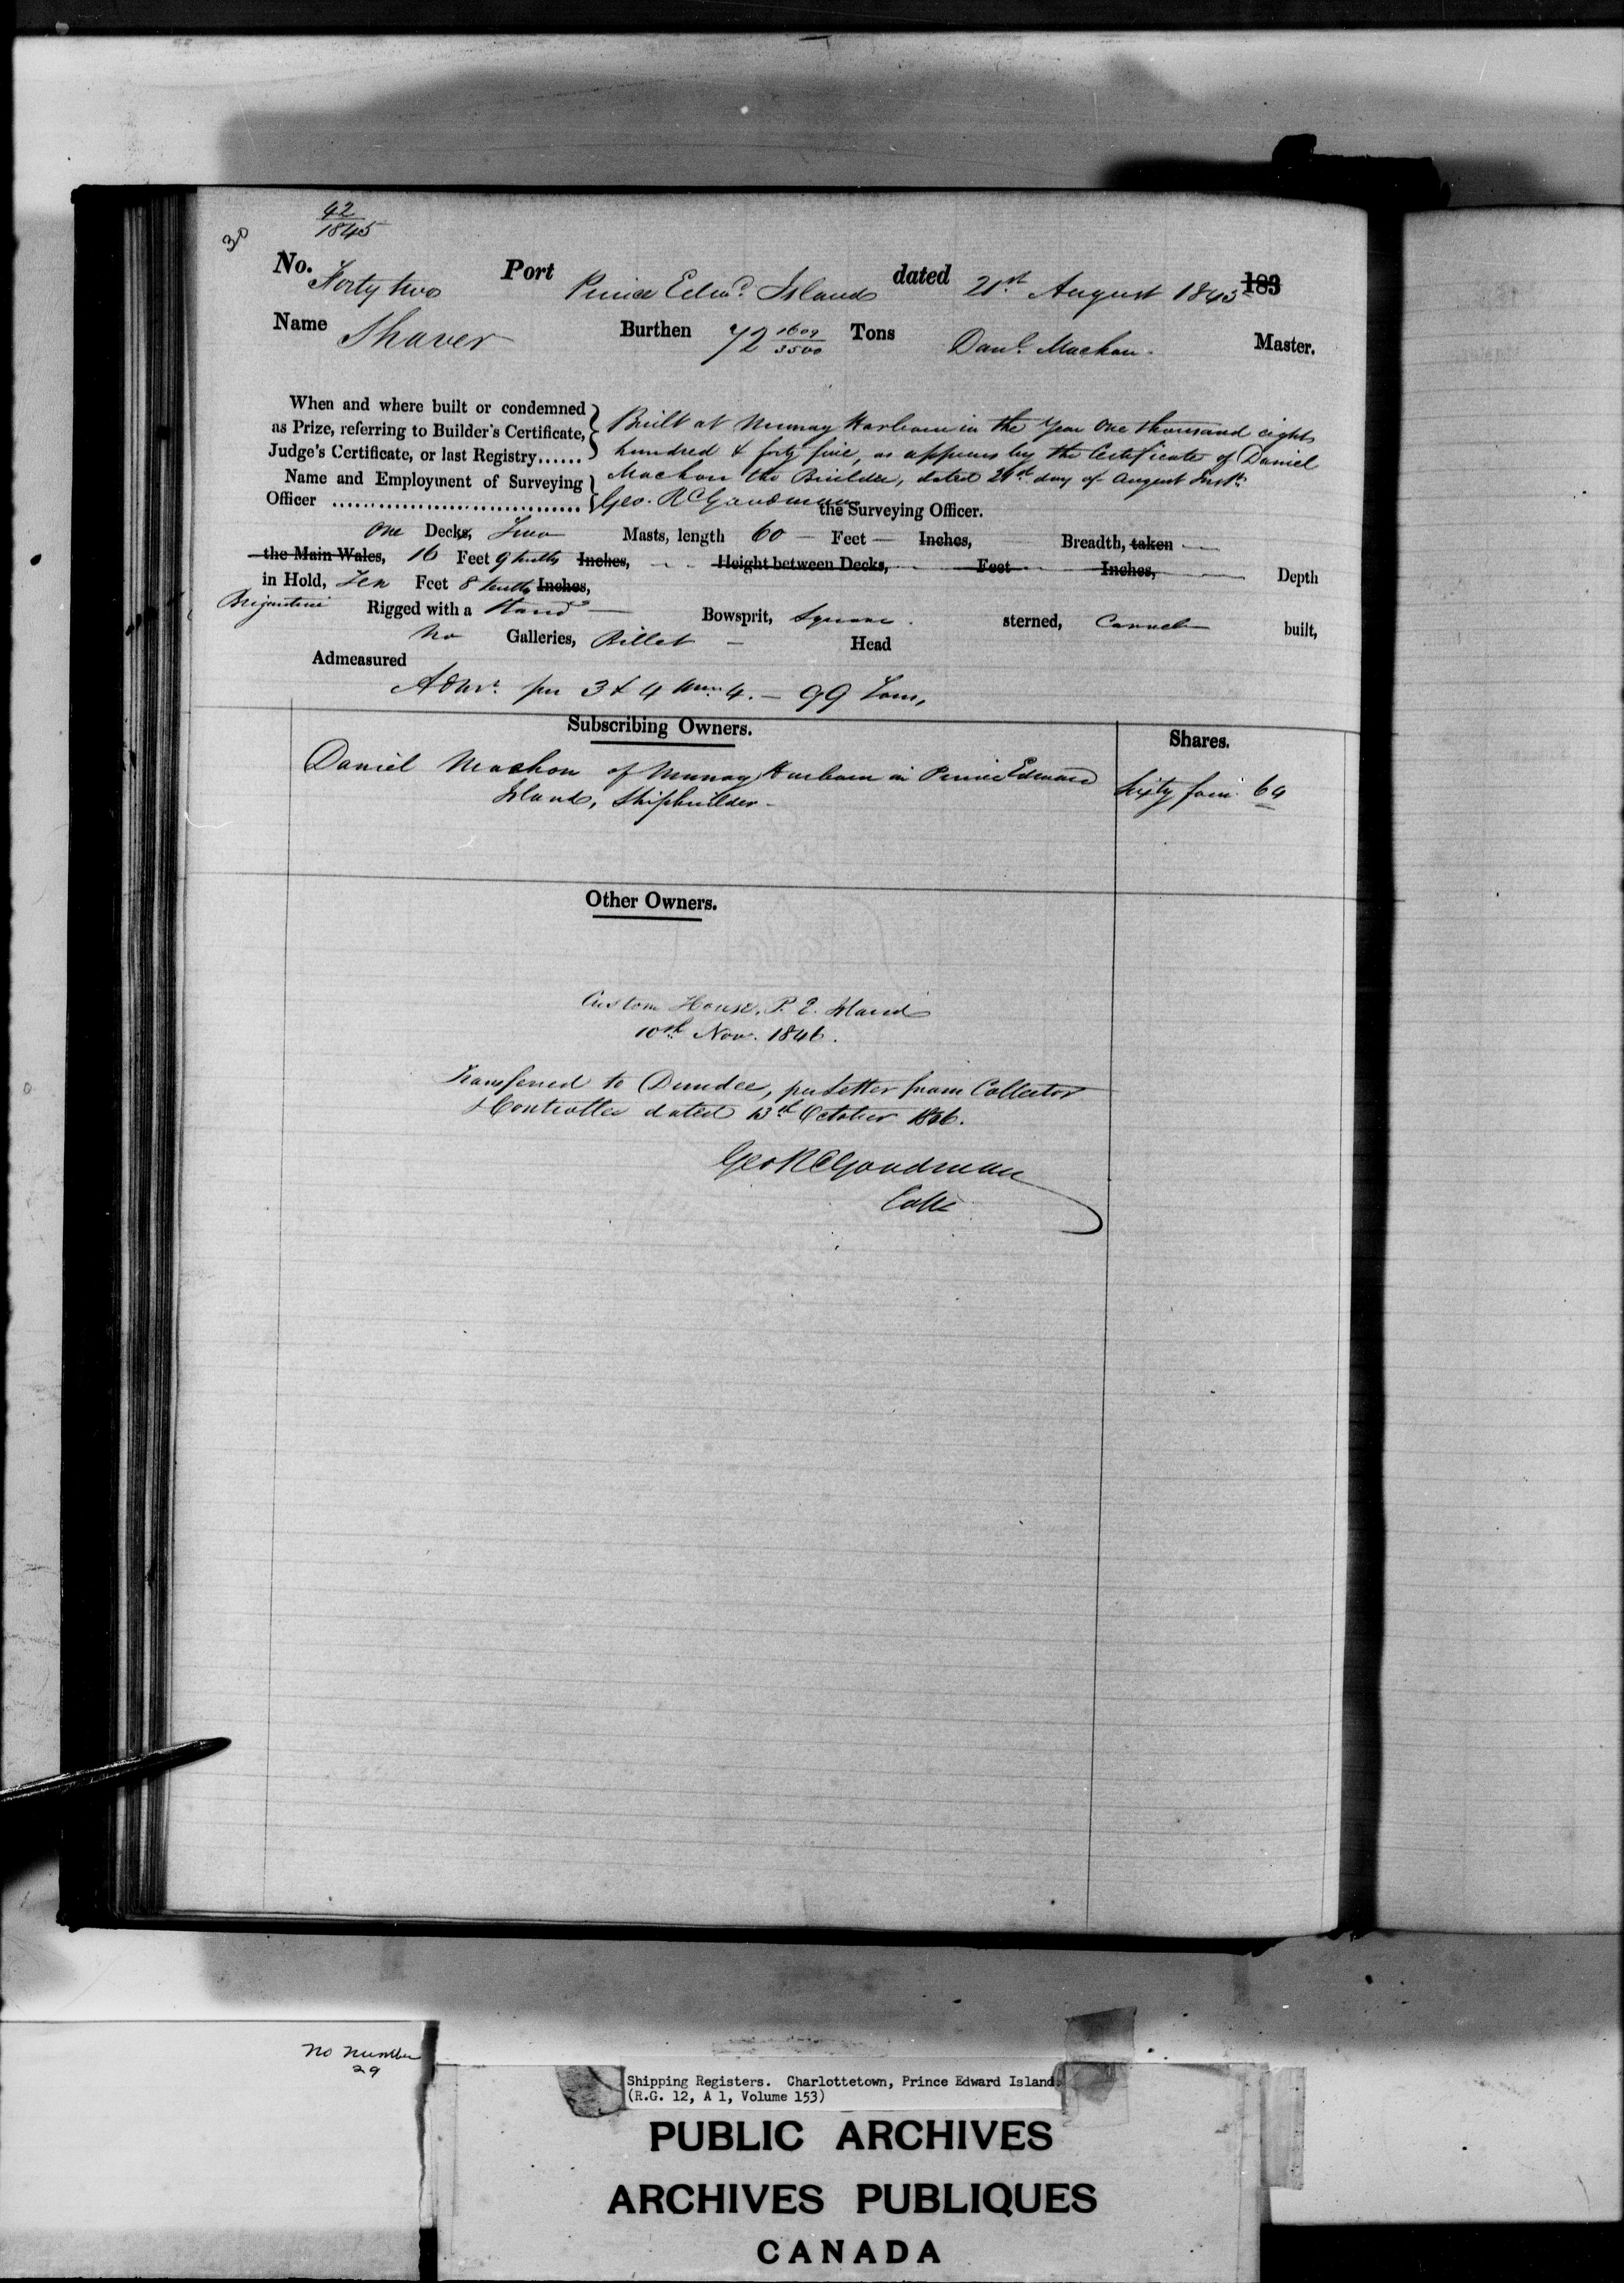 42
1845
30
No. Forty two Port Prince Edwd. Island dated 21st August 1845 183
Name Shaver Burthen 72 1609/3500 Tons Danl. Machon Master.
When and where built or condemned as Prize, referring to Builder's Certificate, Judge's Certificate, or last Registry......
Built at Murray Harbour in the Year One thousand eight
hundred & forty five, as appears by the Certificate of Daniel
Machon the Builder, dated day of August Inst.
Name and Employment of Surveying Officer
Geo. R C Goodman the Surveying Officer.
One Decks, Two Masts, length 60 — Feet — Inches, Breadth, taken
the Main Wales, 16 Feet 9 tenths Inches, Height between Decks, Feet Inches, Depth
in Hold, Ten Feet 8 tenths Inches,
Brigantine Rigged with a Stand Bowsprit, Square sterned, Carvel built,
No Galleries, Billet — Head
Admeasured
per 3 & 4 4. — 99 Tons,
Subscribing Owners.
Shares.
Daniel Machon of Murray Harbour in Prince Edward
Sixty four 64
Island, Shipbuilder —
Other Owners.
Custom House, P. E. Island
10th Nov. 1846.
Transferred to Dundee, per Letter from Collector
& Controller dated 13th October 1846.
Geo R C Goodman
Collr
No Number
29
Shipping Registers. Charlottetown, Prince Edward Island.
(R.G. 12, A 1, Volume 153)
PUBLIC ARCHIVES
ARCHIVES PUBLIQUES
CANADA